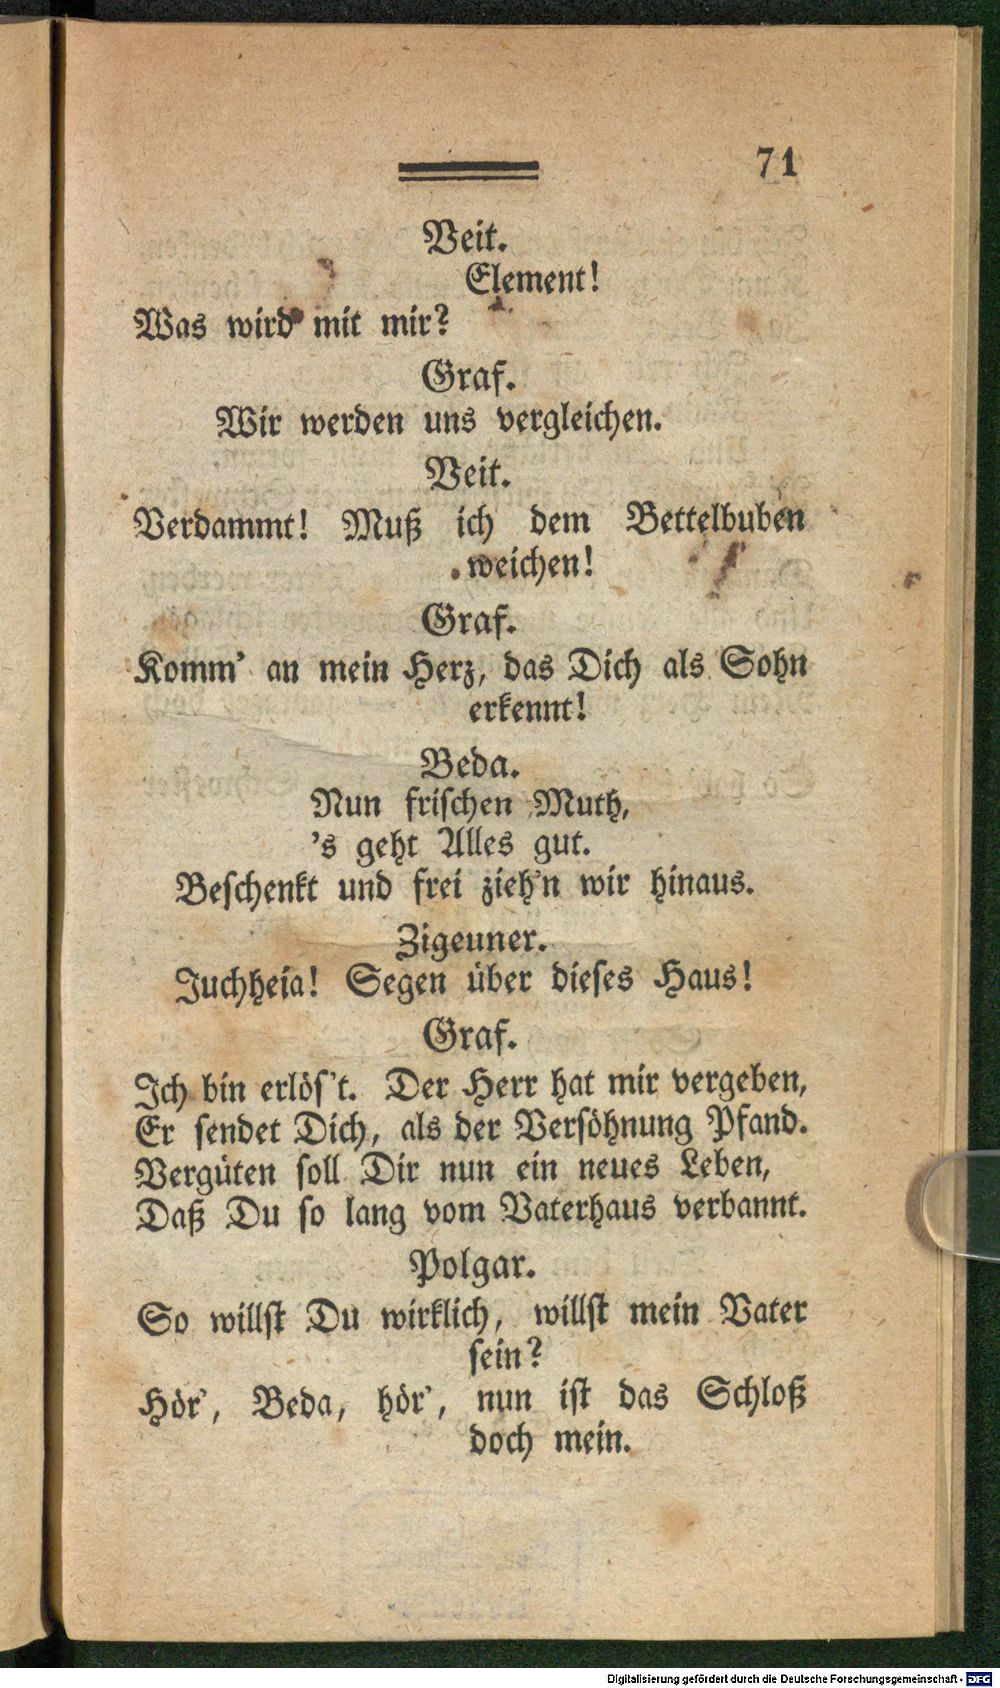 71
Veit.
Element!
Was wird mit mir?
Graf.
Wir werden uns vergleichen.
Veit.
Verdammt! Muß ich dem Bettelbuben
weichen!
Graf.
Komm' an mein Herz, das Dich als Sohn
erkennt!
Beda.
Nun frischen Muth,
's geht Alles gut.
Beschenkt und frei zieh'n wir hinaus.
Zigeuner.
Juchheia! Segen über dieses Haus!
Graf.
Ich bin erlös't. Der Herr hat mir vergeben,
Er sendet Dich, als der Versöhnung Pfand.
Vergüten soll Dir nun ein neues Leben,
Daß Du so lang vom Vaterhaus verbannt.
Polgar.
So willst Du wirklich, willst mein Vater
sein?
Hör', Beda, hör', nun ist das Schloß
doch mein.
Digitalisierung gefördert durch die Deutsche Forschungsgemeinschaft - DFG